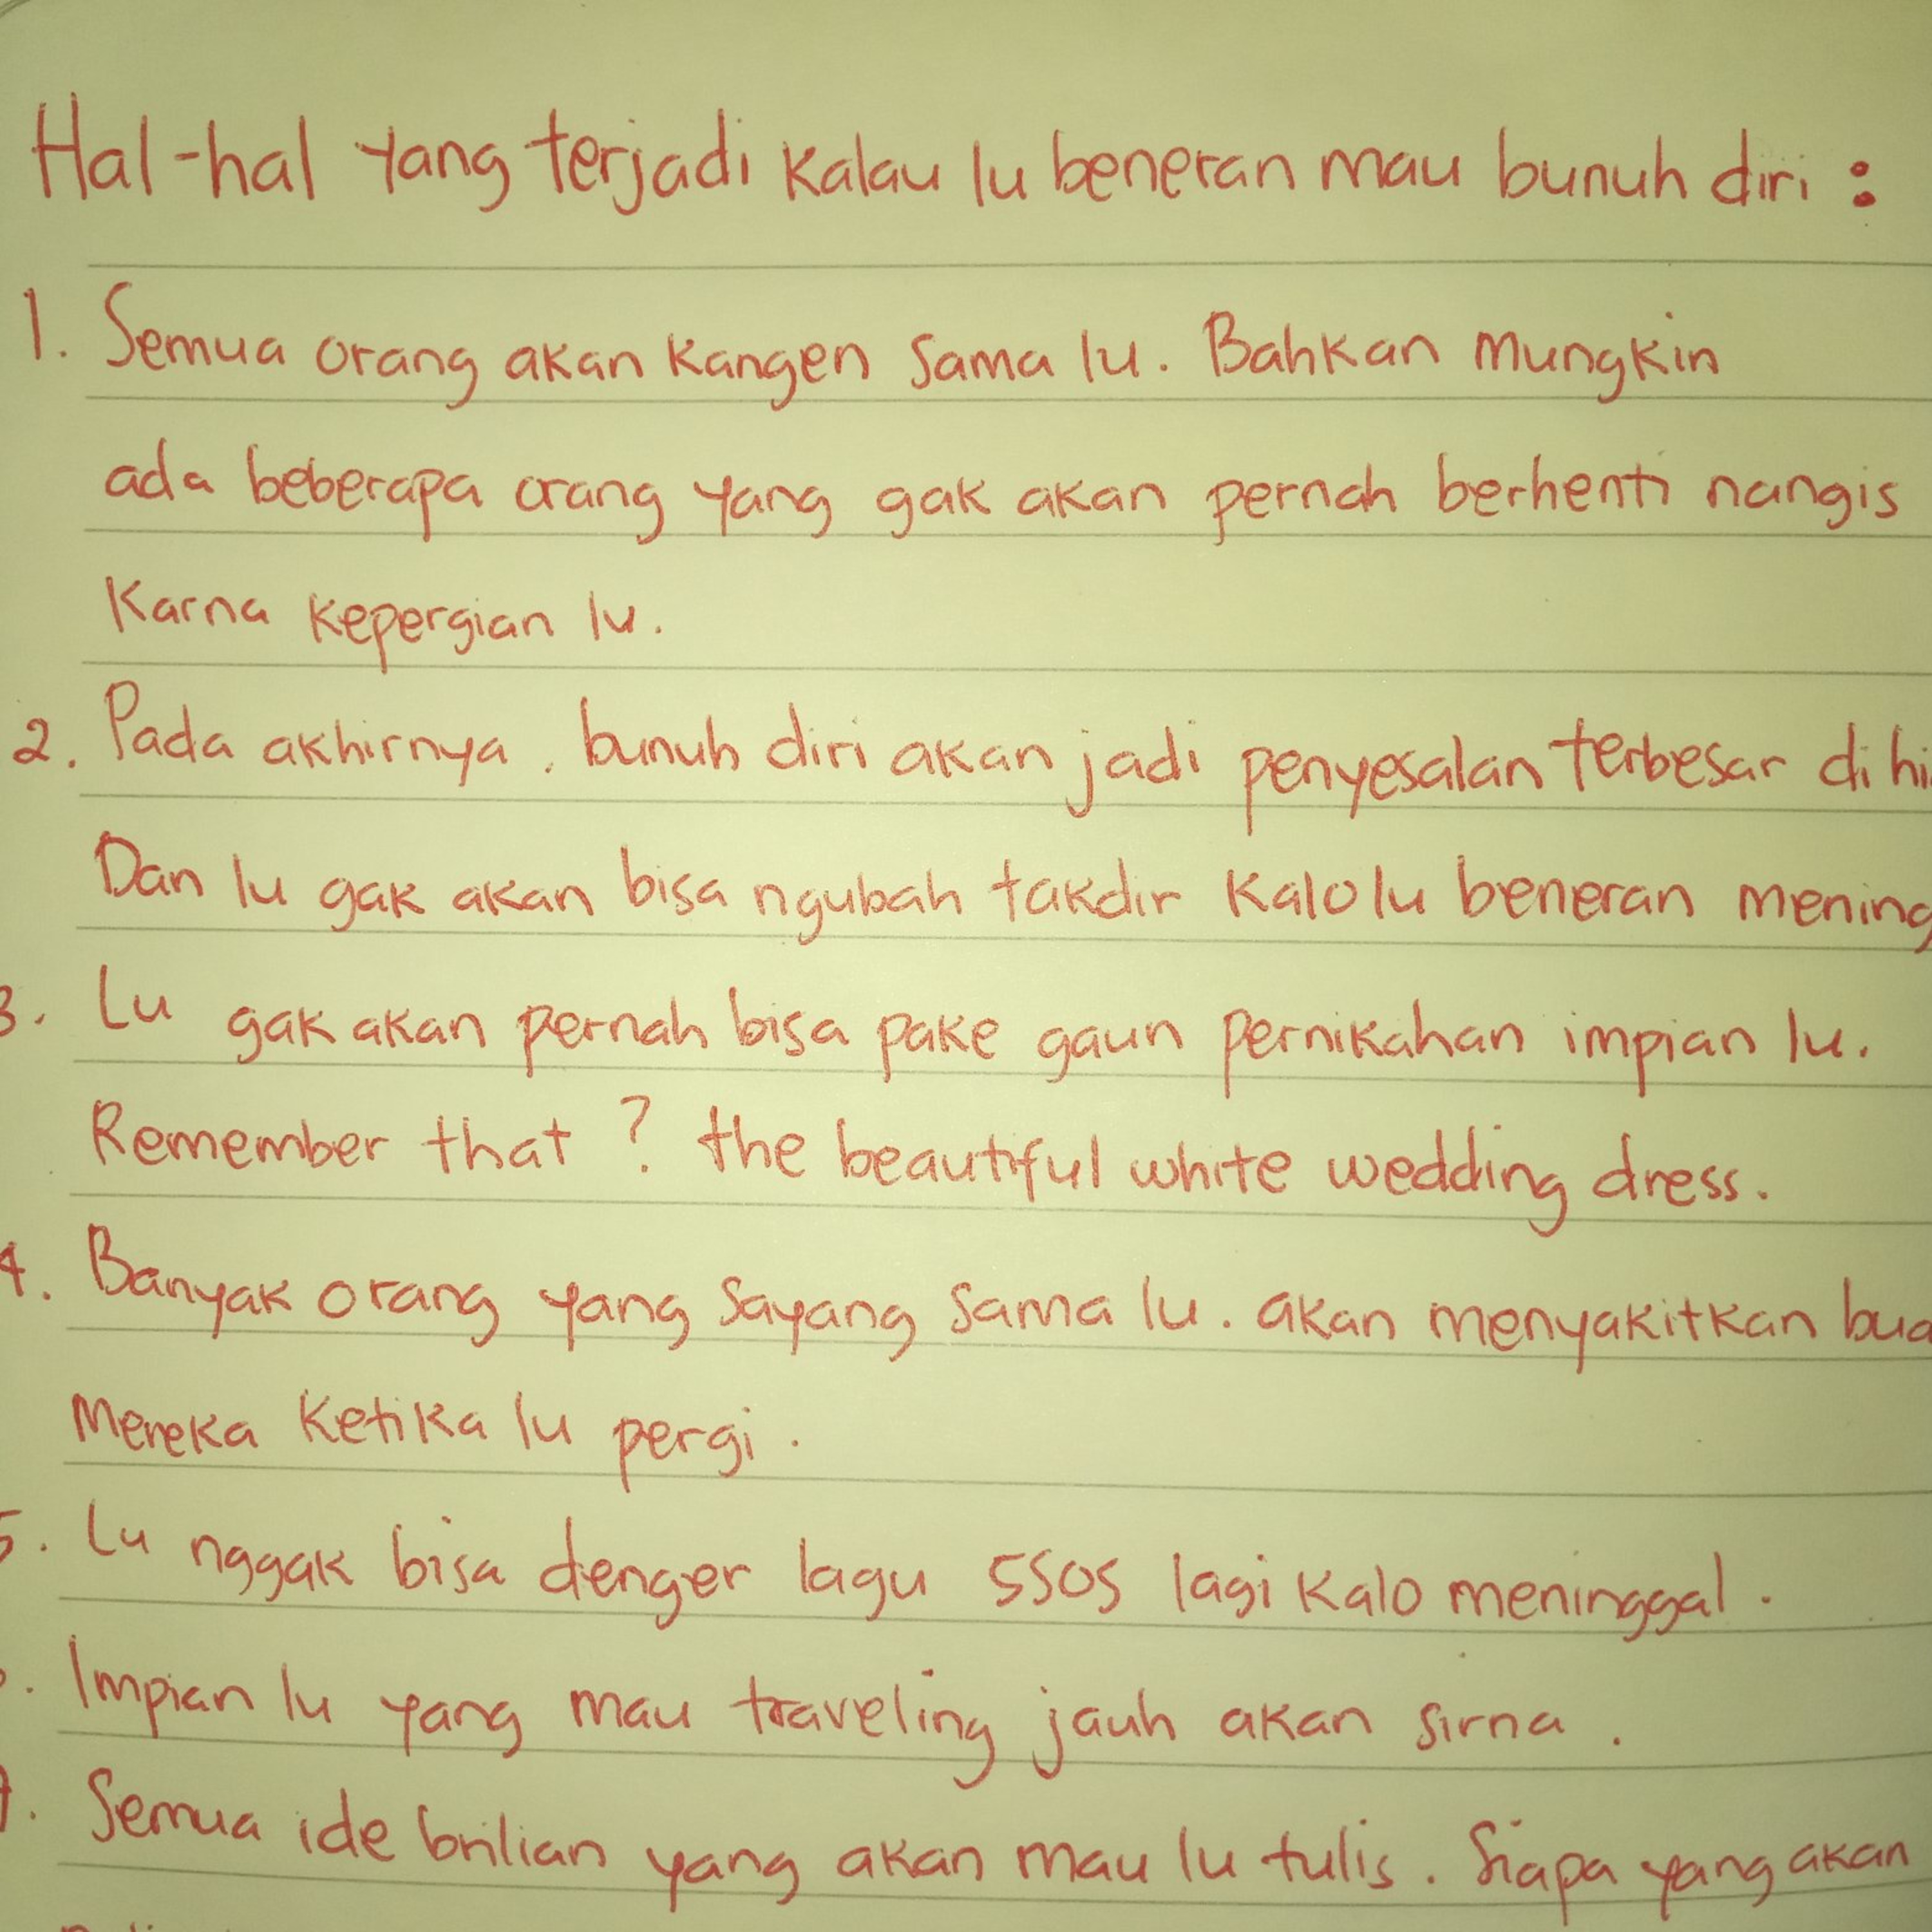 Hal-hal yang terjadi kalau lu beneran mau bunuh diri :
1. Semua orang akan kangen sama lu. Bahkan mungkin
ada beberapa orang yang gak akan pernah berhenti nangis
karna kepergian lu.
2. Pada akhirnya, bunuh diri akan jadi penyesalan terbesar di hi
Dan lu gak akan bisa ngubah takdir kalo lu beneran mening
3. Lu gak akan pernah bisa pake gaun pernikahan impian lu.
Remember that ? the beautiful white wedding dress.
4. Banyak orang yang sayang sama lu. akan menyakitkan bua
mereka ketika lu pergi.
5. Lu nggak bisa denger lagu 5SOS lagi kalo meninggal.
Impian lu yang mau traveling jauh akan sirna.
7. Semua ide brilian yang akan mau lu tulis. Siapa yang akan